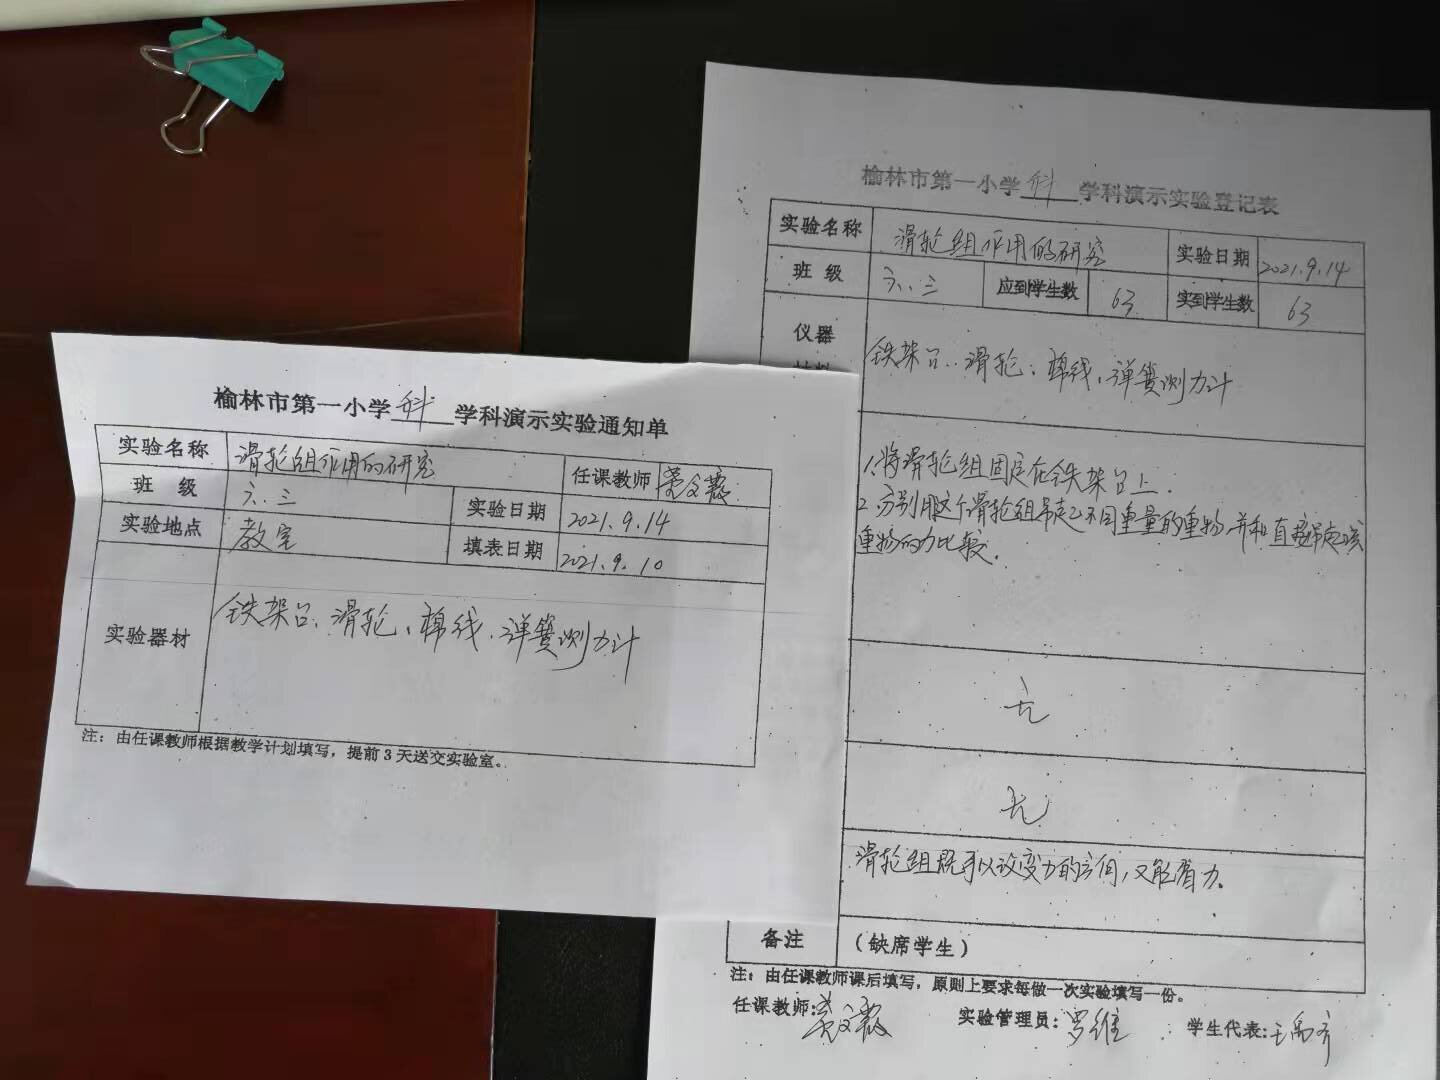 榆林市第一小学 科 学科演示实验通知单
实验名称 滑轮组作用的研究 任课教师
班 级 六.三 实验日期 2021.9.14
实验地点 教室 填表日期 2021.9.10
实验器材 铁架台、滑轮、棉线、弹簧测力计
注：由任课教师根据教学计划填写，提前3天送交实验室。
榆林市第一小学 科 学科演示实验登记表
实验名称 滑轮组作用的研究 实验日期 2021.9.14
班 级 六.三 应到学生数 63 实到学生数 63
仪器
铁架台、滑轮、棉线、弹簧测力计
1.将滑轮组固定在铁架台上.
2.分别用这个滑轮组吊起不同重量的重物,并和直接吊起该
重物的力比较.
无
无
滑轮组既可以改变力的方向,又能省力.
备注 （缺席学生）
注：由任课教师课后填写，原则上要求每做一次实验填写一份。
任课教师: 实验管理员:罗维 学生代表: